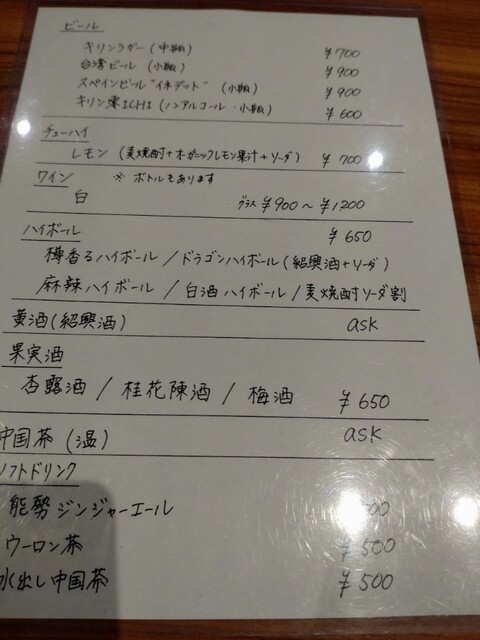 ビール
キリンラガー(中瓶) ¥700
台湾ビール(小瓶) ¥900
スペインビール"イネデット"(小瓶) ¥900
キリン零ICHI(ノンアルコール・小瓶) ¥600
チューハイ
レモン(麦焼酎+オーガニックレモン果汁+ソーダ) ¥700
ワイン ※ボトルもあります
白 グラス ¥900~¥1200
ハイボール ¥650
樽香るハイボール/ドラゴンハイボール(紹興酒+ソーダ)
麻辣ハイボール/白酒ハイボール/麦焼酎ソーダ割
黄酒(紹興酒) ask
果実酒
杏露酒/桂花陳酒/梅酒 ¥650
中国茶(温) ask
ソフトドリンク
能勢ジンジャーエール
ウーロン茶 ¥500
水出し中国茶 ¥500